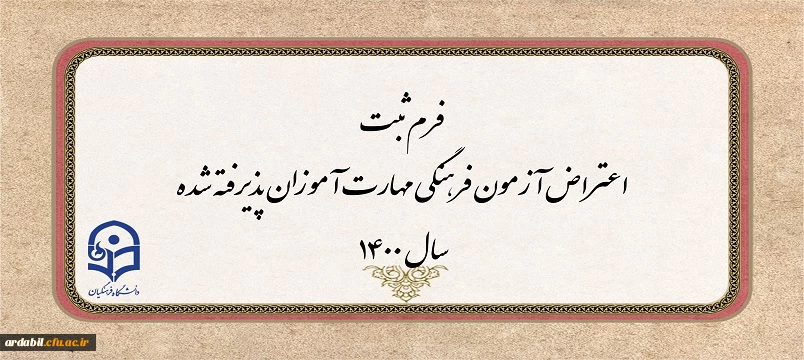 فرم ثبت
اعتراض آزمون فرهنگی مهارت آموزان پذیرفته شده
سال ۱۴۰۰
دانشگاه فرهنگیان
ardabil.cfu.ac.ir